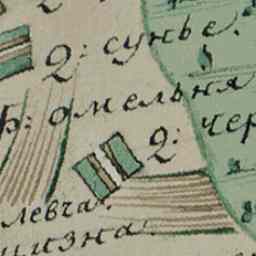 2: сунье.
ф: омельня
2: чер
левча.
чизна.